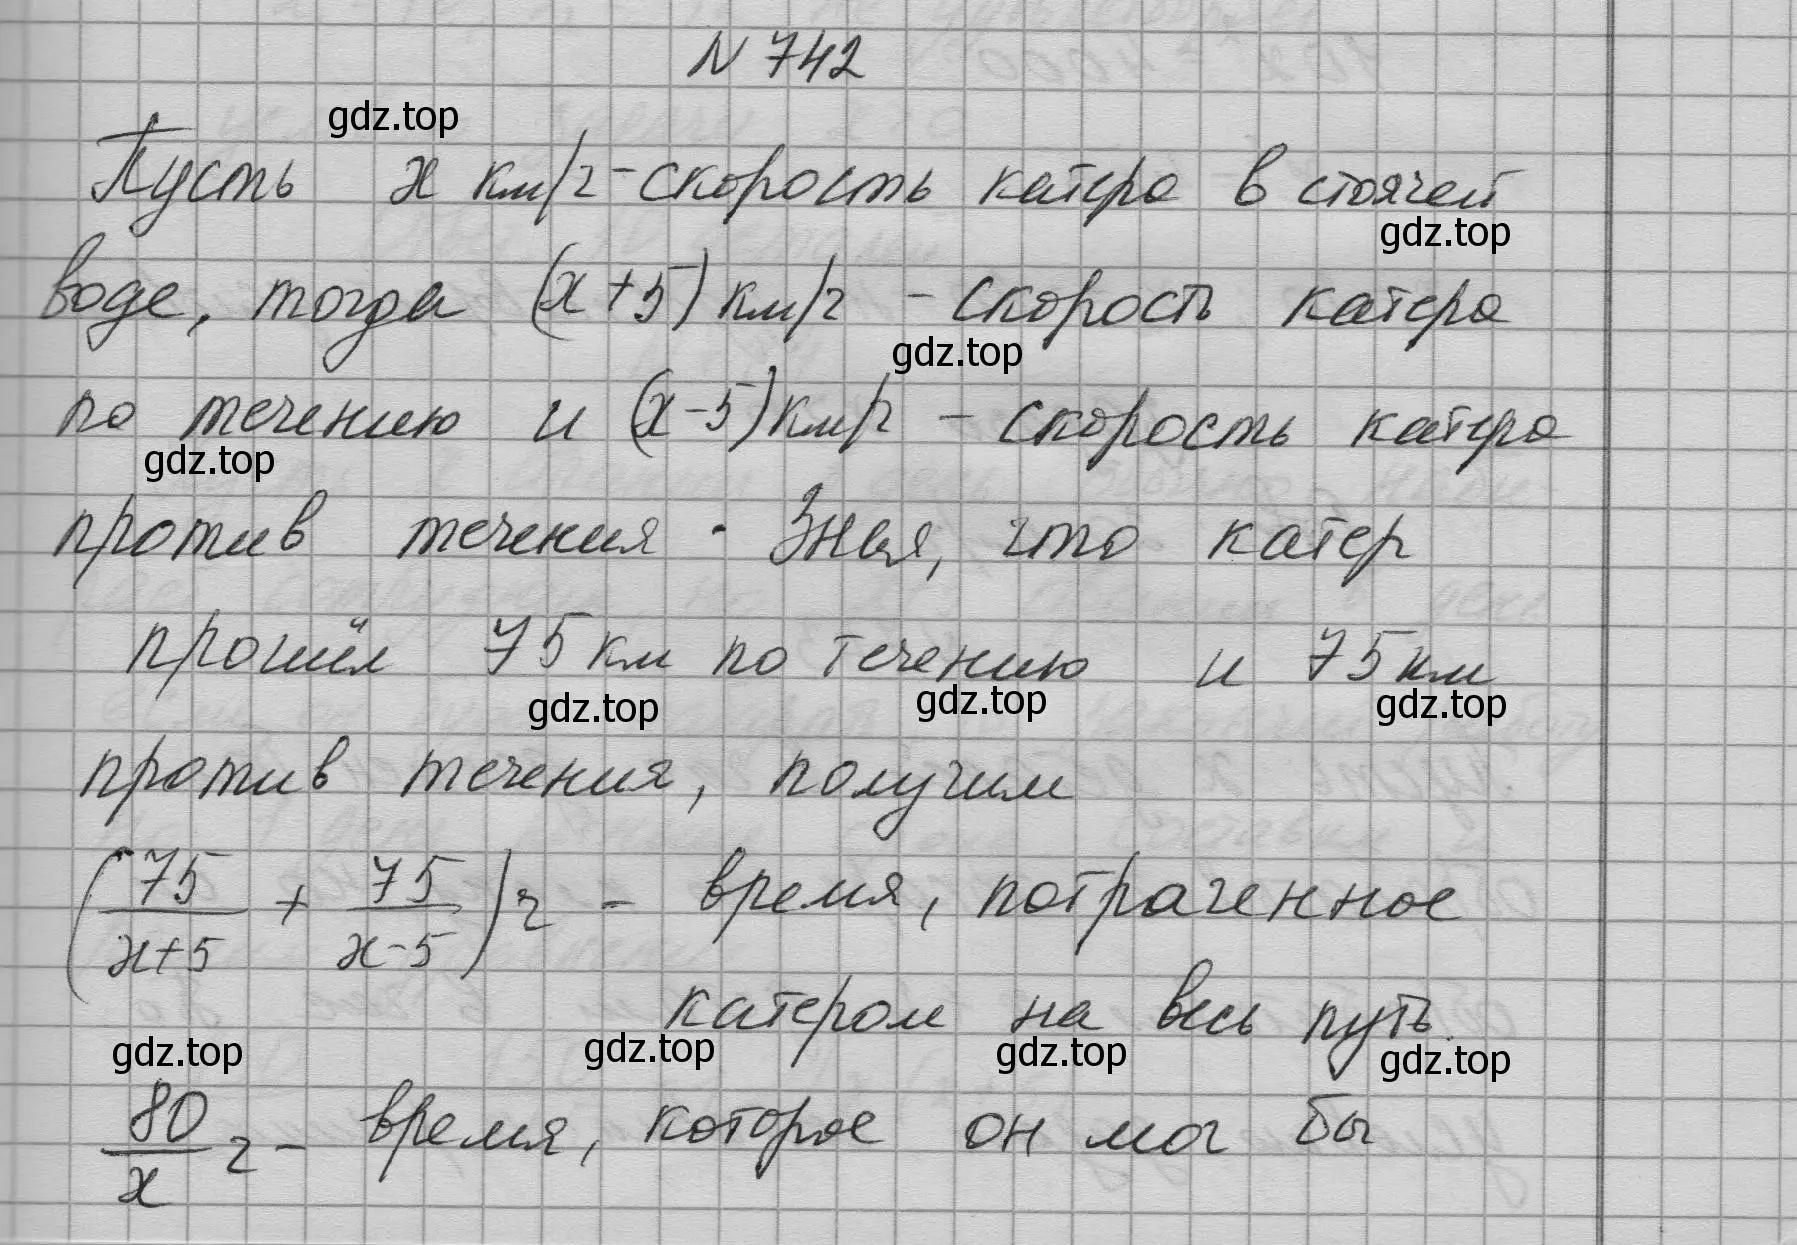 N 742
gdz.top
Пусть x км/ч - скорость катера в стоячей
gdz.top
воде, тогда (x+5) км/ч - скорость катера
gdz.top
по течению и (x-5) км/ч - скорость катера
gdz.top
против течения. Зная, что катер
прошёл 75 км по течению и 75 км
gdz.top gdz.top gdz.top
против течения, получим
(75/(x+5) + 75/(x-5)) ч - время, потраченное
катером на весь путь.
gdz.top gdz.top gdz.top gdz.top
80/x ч - время, которое он мог бы